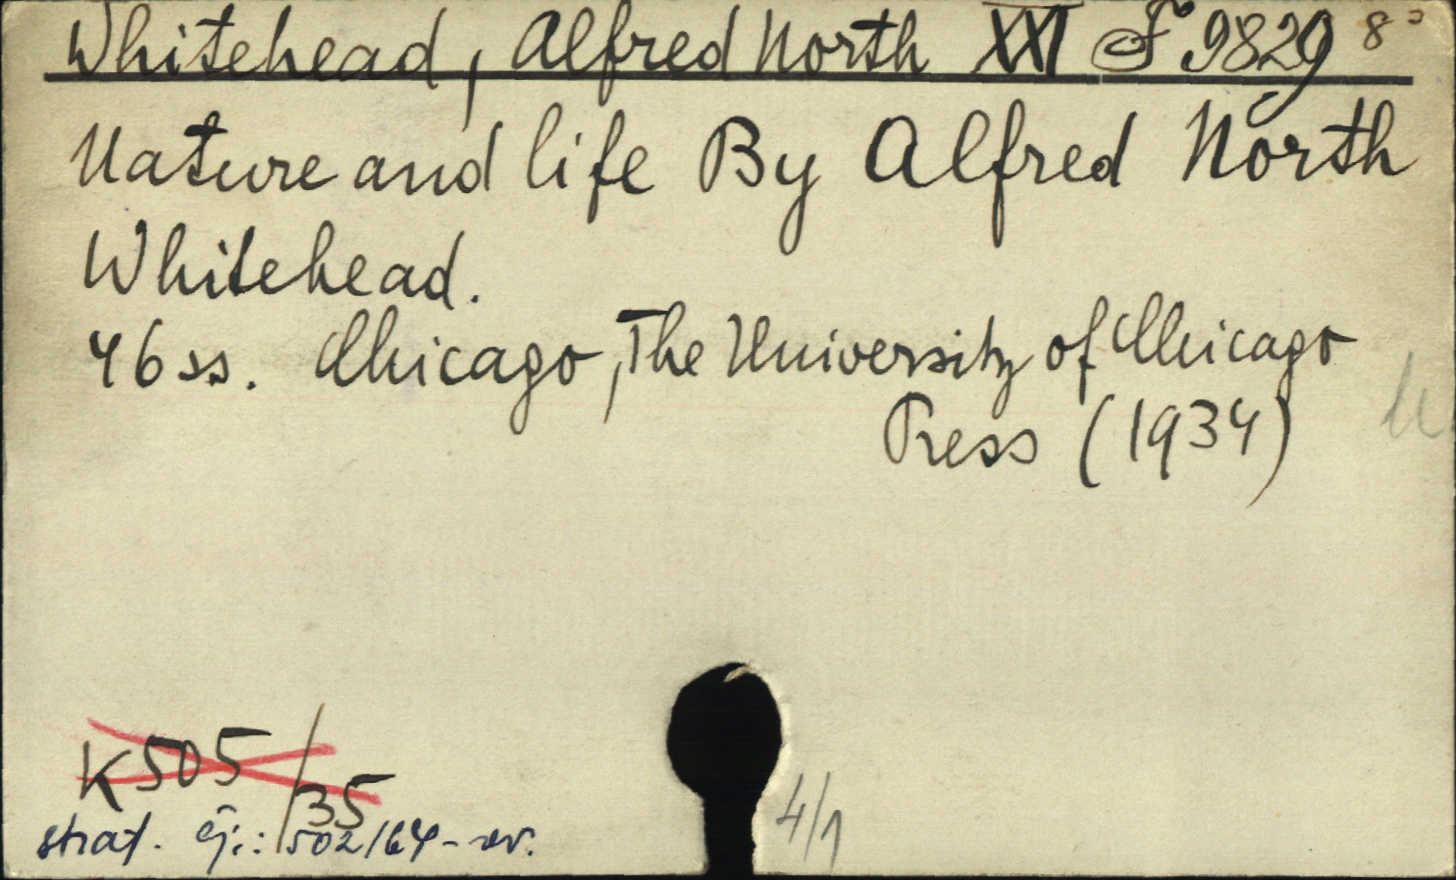 Whitehead, Alfred North XXI F 9829 8°
Nature and life By Alfred North
Whitehead.
46 ss. Chicago, The University of Chicago
Press (1934)
K 505/35
4/1
502/64